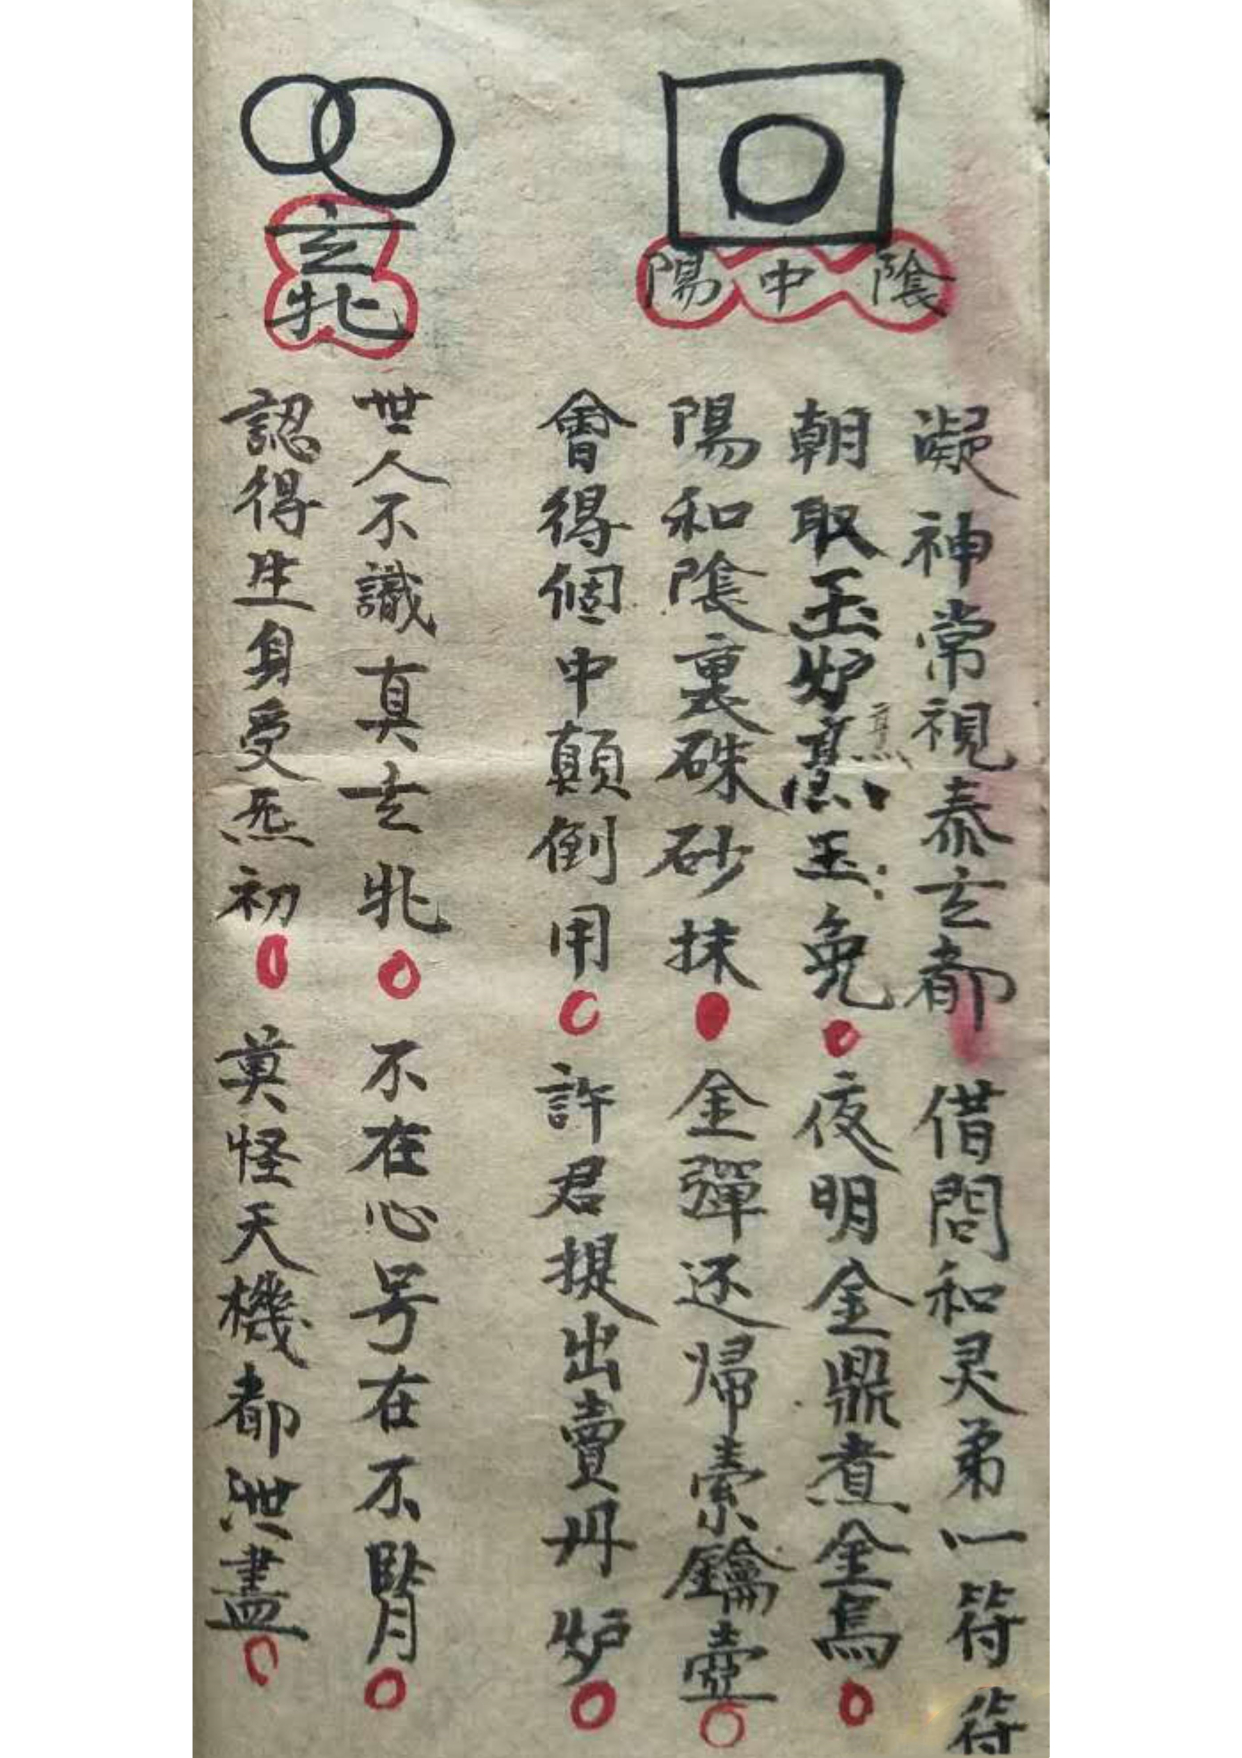 陰中陽
凝神常視泰玄都借問和灵弟一符符
朝取玉炉烹玉兔夜明金鼎煮金烏
烹
陽和陰裏硃砂抹金彈还帰素鑰壺
會得個中顛倒用許君提出賣丹炉
玄牝
世人不識真玄牝不在心号在不腎
認得生身受炁初莫怪天機都泄盡